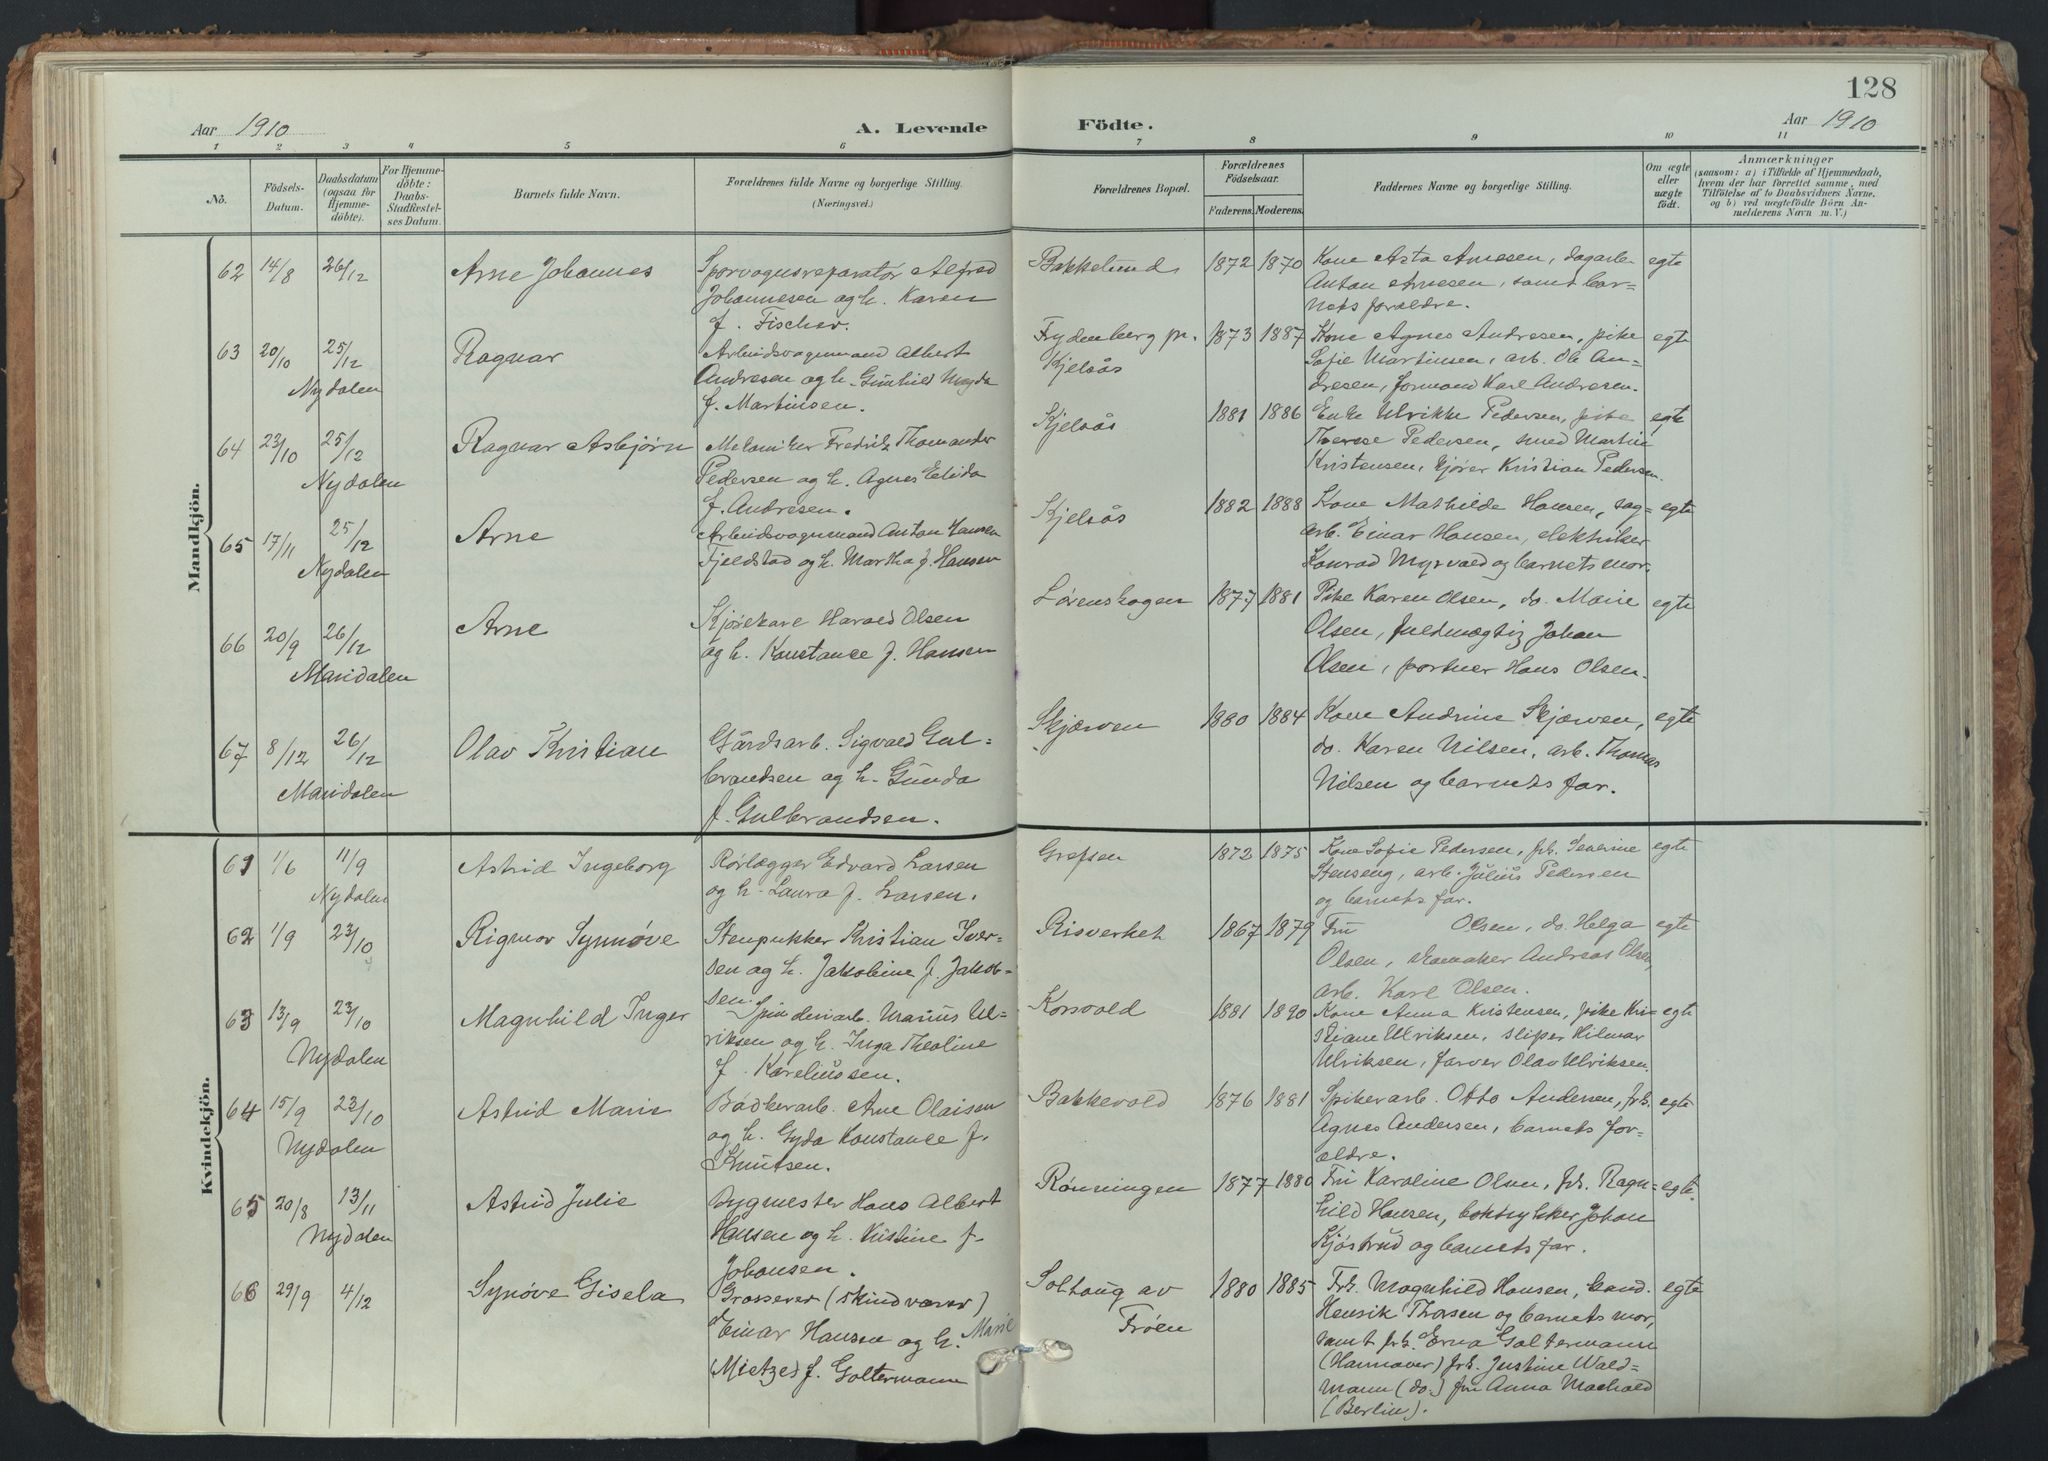 128
Aar 1910 A. Levende Födte. Aar 1910
1 2 3 4 5 6 7 8 9 10 11
No.
Födsels-
Datum.
Daabsdatum
(ogsaa for
Hjemme-
döbte).
For Hjemme-
döbte:
Daabs-
Stadfæstel-
ses Datum.
Barnets fulde Navn.
Forældrenes fulde Navne og borgerlige Stilling.
(Næringsvei.)
Forældrenes Bopæl.
Forældrenes
Födselsaar.
Faderens. Moderens.
Faddernes Navne og borgerlige Stilling.
Om ægte
eller
uægte
födt.
Anmærkninger
(saasom: a) i Tilfælde af Hjemmedaab,
hvem der har forrettet samme, med
Tilföielse af to Daabsvidners Navne,
og b) ved uægtefödte Börn An-
melderens Navn m. V.)
Mandkjön.
62 14/8 26/12 Arne Johannes
Sporvognsreparatør Alfred
Johannesen og h. Karen
f. Fischer.
Bakkelund 1872 1870
Kone Asta Arnesen, dagarb.
Anton Arnesen, samt bar-
nets forældre.
egte
63 20/10 25/12 Ragnar
Nydalen
Arbeidsvognmand Albert
Andresen og h. Gunhild Magda
f. Martinsen.
Frydenberg pr.
Kjelsås
1873 1887
Kone Agnes Andresen, pike
Sofie Martinsen, arb. Ole An-
dresen, formand Karl Andresen.
egte
64 23/10 25/12 Ragnar Asbjørn
Nydalen
Mekaniker Fredrik Thomander
Pedersen og h. Agnes Elida
f. Andresen.
Kjelsås 1881 1886
Enke Ulrikke Pedersen, pike
Therese Pedersen, smed Martin
Kristensen, kjører Kristian Pedersen.
egte
65 17/11 25/12 Arne
Nydalen
Arbeidsvognmand Anton Hansen
Fjeldstad og h. Martha f. Hansen
Kjelsås 1882 1888
Kone Mathilde Hansen, sag-
arb. Einar Hansen, elektriker
Konrad Myrvold og barnets mor.
egte
66 20/9 26/12 Arne
Maridalen
Kjørekare Harald Olsen
og h. Konstance f. Hansen
Lørenskogen 1877 1881
Pike Karen Olsen, do. Marie
Olsen, fuldmægtig Johan
Olsen, portner Hans Olsen.
egte
67 8/12 26/12 Olav Kristian
Maridalen
Gårdsarb. Sigvald Gul-
brandsen og h. Gunda
f. Gulbrandsen.
Skjærven 1880 1884
Kone Andrine Skjærven,
do. Karen Nilsen, arb. Thomas
Nilsen og barnets far.
egte
Kvindekjön.
61 1/6 11/9 Astrid Ingeborg
Nydalen
Rørlægger Edvard Larsen
og h. Laura f. Larsen.
Grefsen 1872 1875
Kone Sofie Pedersen, frk. Severine
Stenseng, arb. Julius Pedersen
og barnets far.
egte
62 1/9 23/10 Rigmor Synnøve
Stenpukker Kristian Iver-
sen og h. Jakobine f. Jakob-
sen.
Risverket 1867 1879
Fru Olsen, do. Helga
Olsen, skomaker Andreas Olsen,
arb. Karl Olsen.
egte
63 13/9 23/10 Magnhild Inger
Nydalen
Spinderiarb. Marius Ul-
riksen og h. Inga Theoline
f. Kareliussen.
Korsvold 1881 1890
Kone Anna Kristensen, pike Kri-
stiane Ulriksen, sliper Hilmar
Ulriksen, farver Olav Ulriksen.
egte
64 15/9 23/10 Astrid Marie
Nydalen
Bødkerarb. Arne Olaisen
og h. Gyda Konstance f.
Knutsen.
Bakkevold 1876 1881
Spikerarb. Otto Andersen, frk.
Agnes Andersen, barnets for-
ældre.
egte
65 20/8 13/11 Astrid Julie
Nydalen
Bygmester Hans Albert
Hansen og h. Kristine f.
Johansen.
Rønningen 1877 1880
Fru Karoline Olsen, frk. Ragn-
hild Hansen, boktrykker Johan
Kjøstrud og barnets far.
egte
66 29/9 4/12 Synøve Gisela
Grosserer (skindvarer)
Einar Hansen og h. Marie
(Mietze) f. Goltermann
Solhaug av
Frøen
1880 1885
Frk. Magnhild Hansen, kand.
Henrik Thorsen og barnets mor,
samt frk. Erna Goltermann
(Hannover) frk. Justine Wald-
mann (do.) fru Anna Machald
(Berlin).
egte